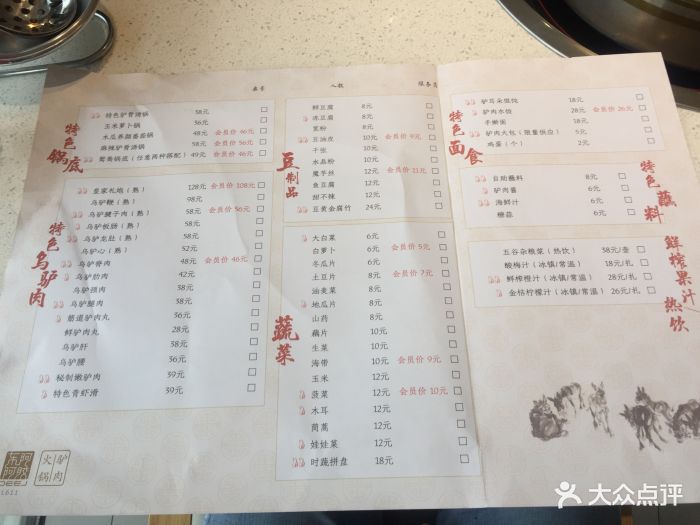 桌号
人数
服务员
特色锅底
特色驴骨汤锅 58元
玉米萝卜锅 56元
木瓜养颜番茄锅 48元 会员价 46元
麻辣驴骨汤锅 58元 会员价 56元
鸳鸯锅底（任意两种搭配） 49元 会员价 46元
特色乌驴肉
皇家礼炮（熟） 128元 会员价 108元
乌驴鞭（熟） 98元
乌驴腱子肉（熟） 58元 会员价 56元
乌驴板肠（熟） 58元
乌驴龙肚（熟） 58元
乌驴心（熟） 52元
乌驴脊肉 48元 会员价 46元
乌驴肋肉 42元
乌驴颈肉 38元
乌驴腿肉 38元
筋道驴肉丸 36元
鲜驴肉丸 28元
乌驴肝 38元
乌驴腰 36元
秘制嫩驴肉 39元
特色青虾滑 39元
豆制品
鲜豆腐 8元
冻豆腐 8元
宽粉 8元
豆油皮 10元 会员价 9元
千张 10元
水晶粉 10元
魔芋丝 12元 会员价 11元
鱼豆腐 12元
甜不辣 12元
豆黄金腐竹 24元
蔬菜
大白菜 6元
白萝卜 6元 会员价 5元
冬瓜片 6元
土豆片 8元 会员价 7元
油麦菜 8元
地瓜片 8元
山药 10元
藕片 10元
生菜 10元
海带 10元 会员价 9元
玉米 12元
菠菜 12元 会员价 10元
木耳 12元
茼蒿 12元
娃娃菜 12元
时蔬拼盘 18元
特色面食
驴耳朵馄饨 18元
驴肉水饺 28元 会员价 26元
手擀面 8元
驴肉大包（限量供应） 5元
鸡蛋（个） 2元
特色蘸料
自助蘸料 8元
驴肉酱 6元
海鲜汁 6元
糖蒜 6元
鲜榨果汁 热饮
五谷杂粮浆（热饮） 38元/壶
酸梅汁（冰镇/常温） 18元/扎
鲜榨橙汁（冰镇/常温） 28元/扎
金桔柠檬汁（冰镇/常温） 26元/扎
东阿阿胶
DEEJ
1611
火锅
驴肉
大众点评